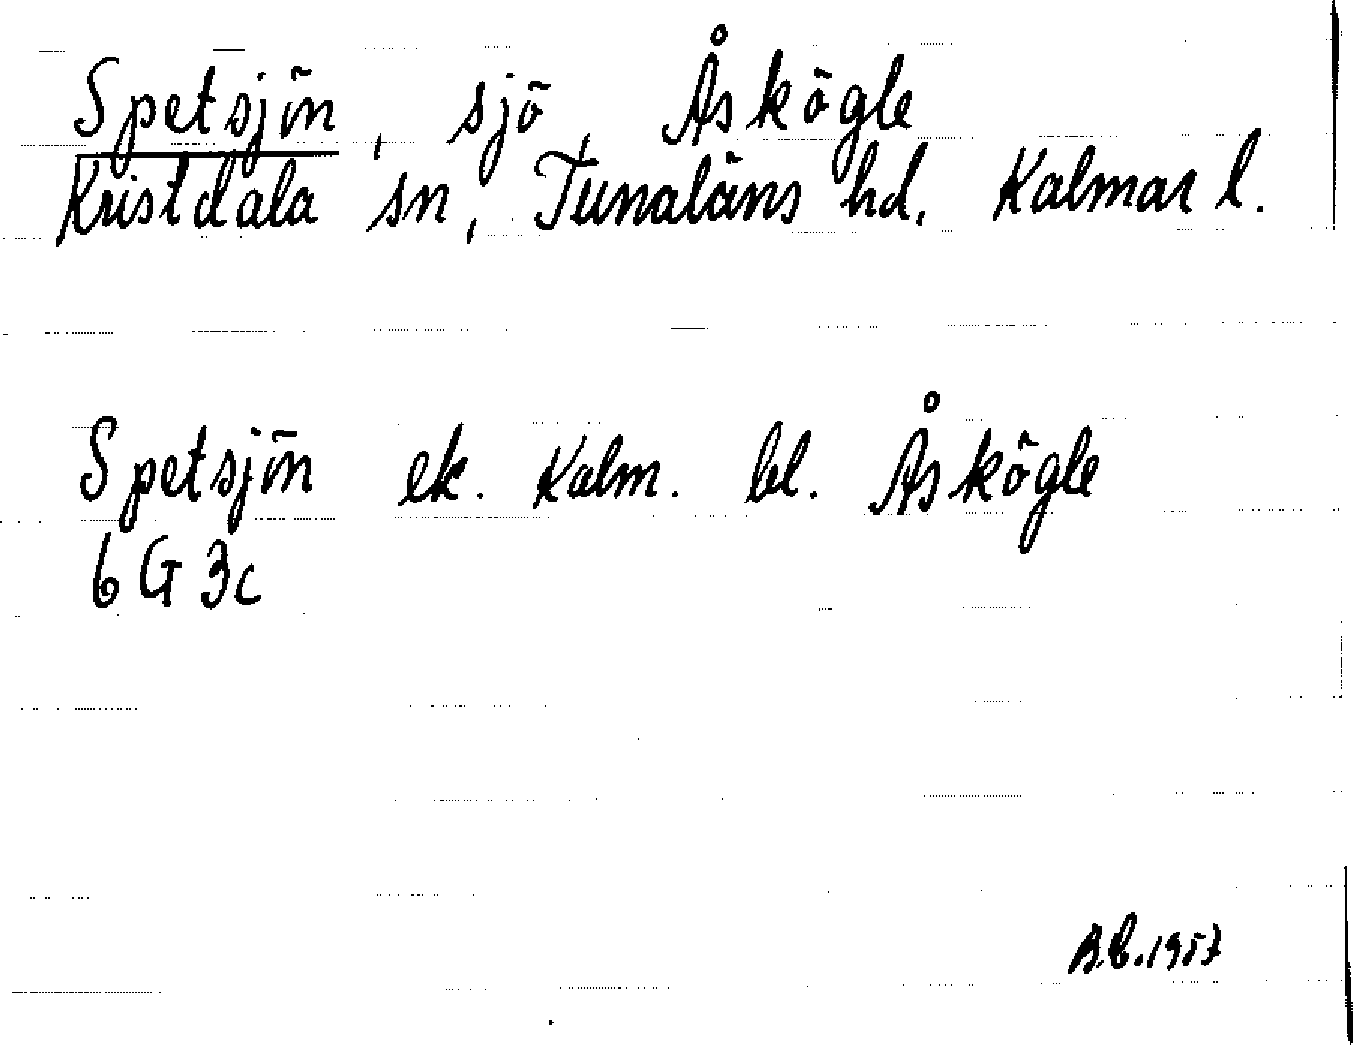 Spetsjön, sjö, Åskögle
Kristdala sn, Tunaläns hd. Kalmar l.
Spetsjön ek. Kalm. bl. Åskögle
6 G 3c
B.b. 1957